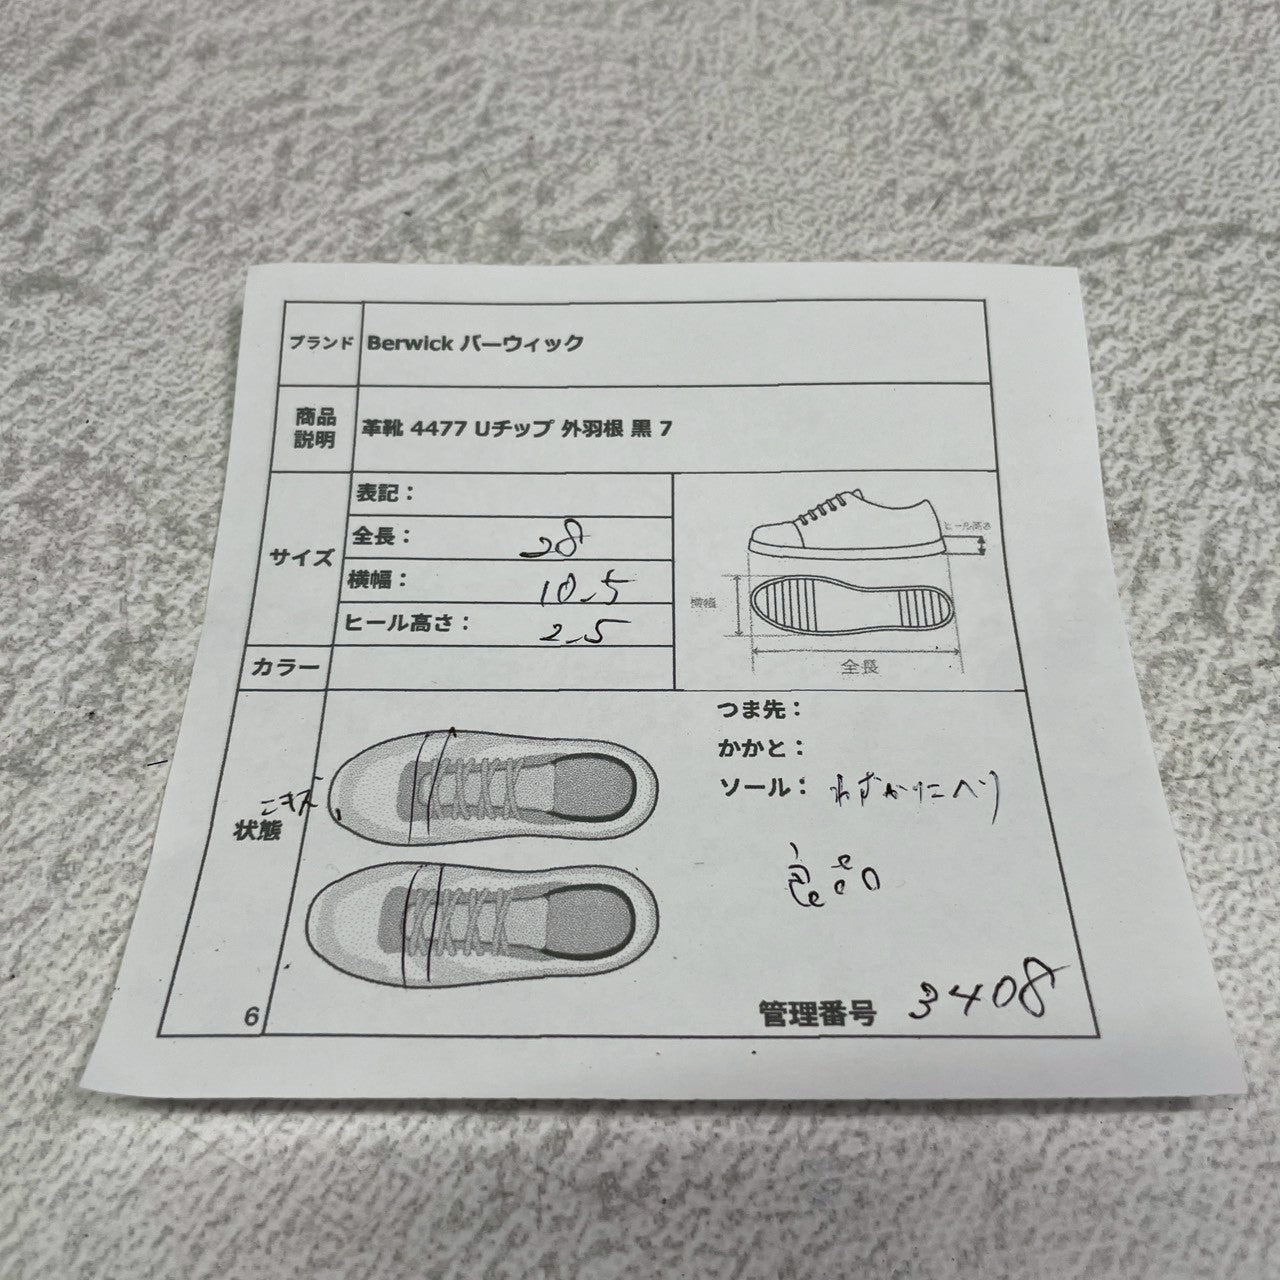 ブランド Berwick バーウィック
商品
説明
革靴 4477 Uチップ 外羽根 黒 7
サイズ
表記：
全長： 28
横幅： 10.5
ヒール高さ： 2.5
ヒール高さ
横幅
全長
カラー
状態
こキズ
つま先：
かかと：
ソール： わずかにヘリ
6
管理番号 3408